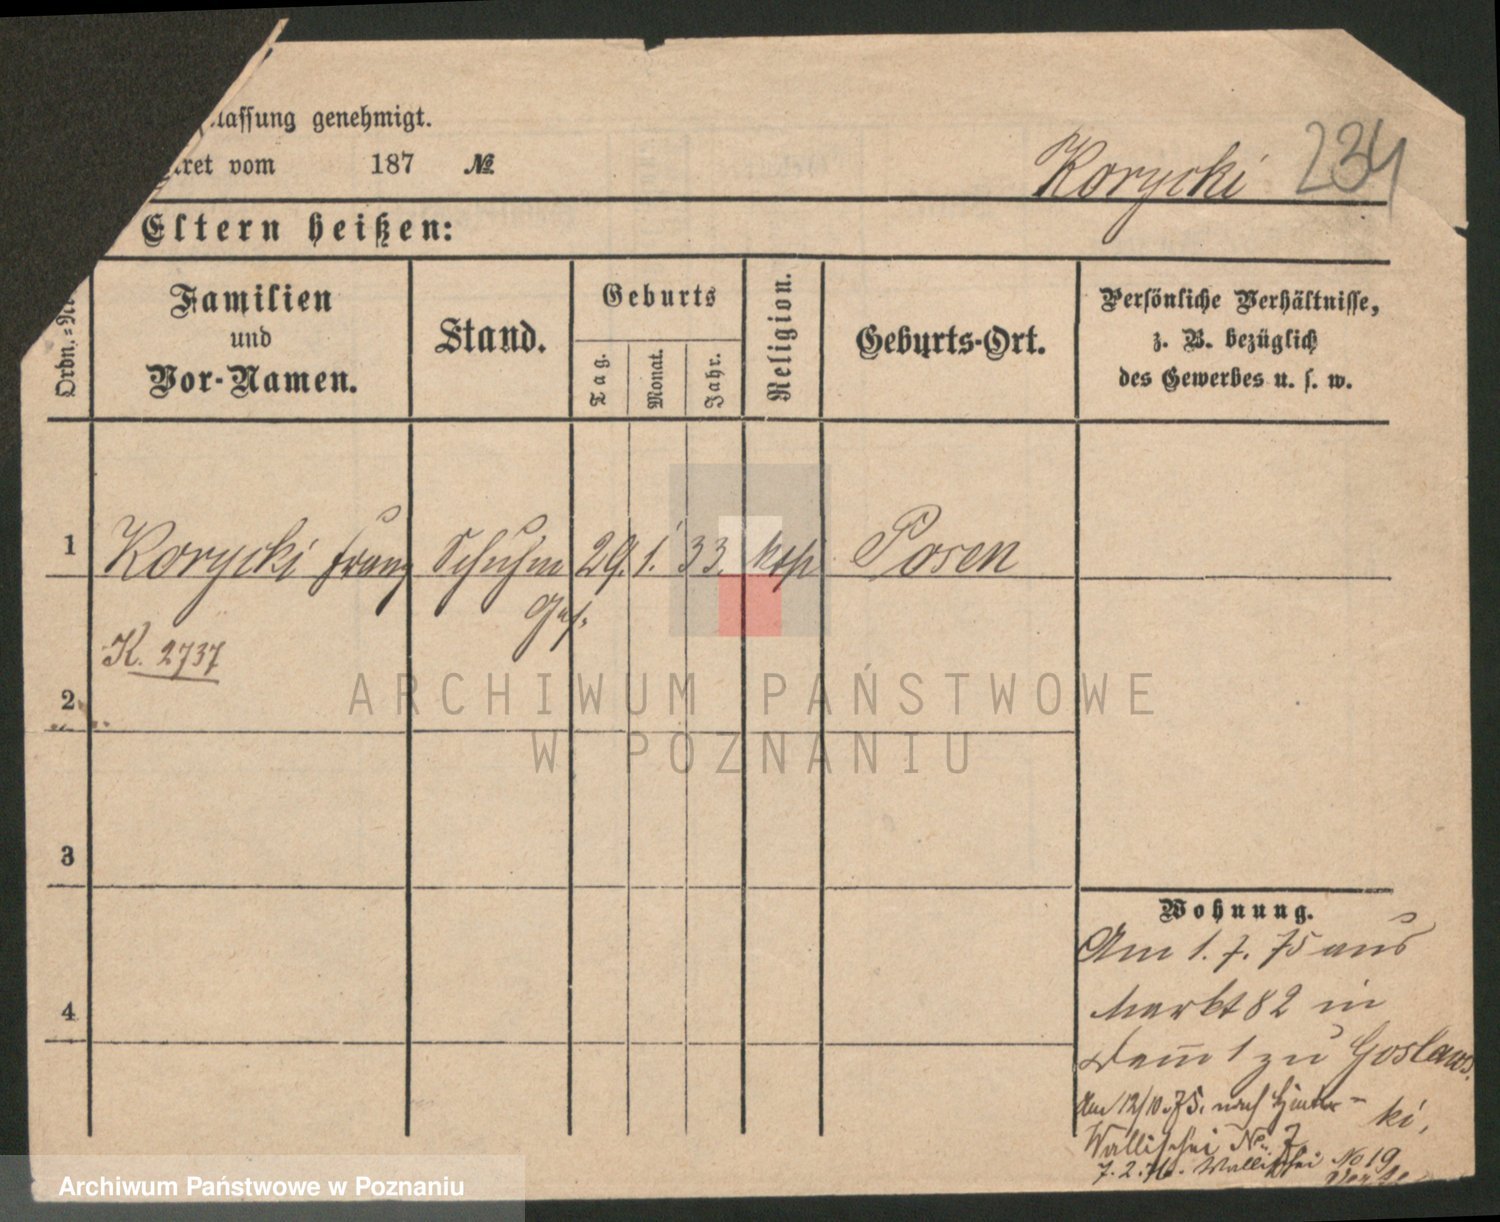 lassung genehmigt.
ret vom 187 №
Korycki 234
Eltern heißen:
Ordn.=Nr
Familien
und
Vor-Namen.
Stand.
Geburts
Tag.
Monat.
Jahr.
Religion.
Geburts-Ort.
Persönliche Verhältnisse,
z. B. bezüglich
des Gewerbes u. s. w.
1 Korycki Franz Schuhm 29. 1. 33. kath Posen
Ges.
K. 2737
2
ARCHIWUM PAŃSTWOWE
W POZNANIU
3
Wohnung.
Am 1. 7. 75 aus
Markt 82 in
4
Dam̅ 1 zu Goslaws
ki,
Am 12/10. 75. nach Hinter-
Wallischei No. 7
7. 2. 76. Wallischei No 19
Archiwum Państwowe w Poznaniu